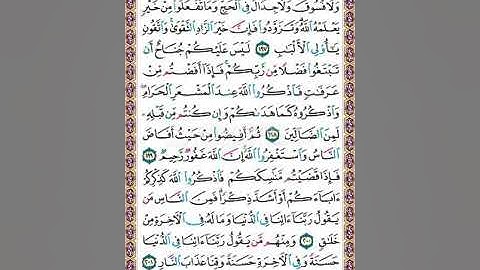 وَلَا فُسُوقَ وَلَا جِدَالَ فِي الْحَجِّ وَمَا تَفْعَلُوا مِنْ خَيْرٍ
يَعْلَمْهُ اللَّهُ وَتَزَوَّدُوا فَإِنَّ خَيْرَ الزَّادِ التَّقْوَىٰ وَاتَّقُونِ
يَا أُولِي الْأَلْبَابِ ١٩٧ لَيْسَ عَلَيْكُمْ جُنَاحٌ أَن
تَبْتَغُوا فَضْلًا مِّن رَّبِّكُمْ فَإِذَا أَفَضْتُم مِّنْ
عَرَفَاتٍ فَاذْكُرُوا اللَّهَ عِندَ الْمَشْعَرِ الْحَرَامِ
وَاذْكُرُوهُ كَمَا هَدَاكُمْ وَإِن كُنتُم مِّن قَبْلِهِ
لَمِنَ الضَّالِّينَ ١٩٨ ثُمَّ أَفِيضُوا مِنْ حَيْثُ أَفَاضَ
النَّاسُ وَاسْتَغْفِرُوا اللَّهَ إِنَّ اللَّهَ غَفُورٌ رَّحِيمٌ ١٩٩
فَإِذَا قَضَيْتُم مَّنَاسِكَكُمْ فَاذْكُرُوا اللَّهَ كَذِكْرِكُمْ
آبَاءَكُمْ أَوْ أَشَدَّ ذِكْرًا فَمِنَ النَّاسِ مَن
يَقُولُ رَبَّنَا آتِنَا فِي الدُّنْيَا وَمَا لَهُ فِي الْآخِرَةِ مِنْ
خَلَاقٍ ٢٠٠ وَمِنْهُم مَّن يَقُولُ رَبَّنَا آتِنَا فِي الدُّنْيَا
حَسَنَةً وَفِي الْآخِرَةِ حَسَنَةً وَقِنَا عَذَابَ النَّارِ ٢٠١